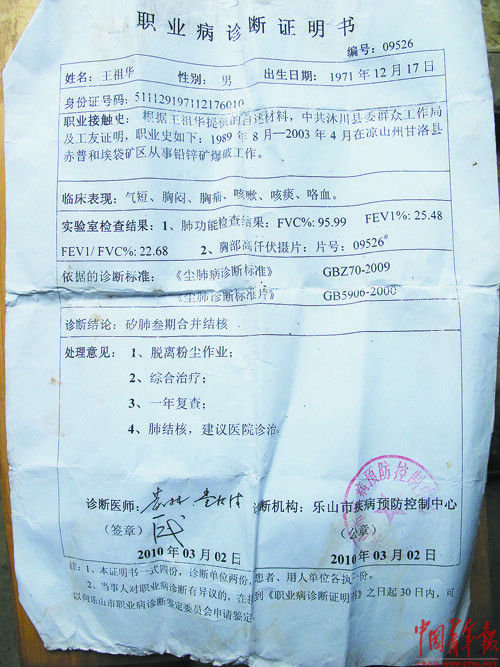 职业病诊断证明书
编号：09526
姓名：王祖华 性别：男 出生日期：1971年12月17日
身份证号码：511129197112176010
职业接触史：根据王祖华提供的自述材料，中共沐川县委群众工作局
及工友证明，职业史如下：1989年8月—2003年4月在凉山州甘洛县
赤普和埃袋矿区从事铅锌矿爆破工作。
临床表现：气短、胸闷、胸痛、咳嗽、咳痰、咯血。
实验室检查结果：1、肺功能检查结果：FVC%: 95.99 FEV1%: 25.48
FEV1/ FVC%: 22.68 2、胸部高仟伏摄片：片号：09526#
依据的诊断标准：《尘肺病诊断标准》 GBZ70-2009
《尘肺诊断标准片》 GB5906-2000
诊断结论：矽肺叁期合并结核
处理意见：1、脱离粉尘作业；
2、综合治疗；
3、一年复查；
4、肺结核，建议医院诊治。
诊断医师： 诊断机构：乐山市疾病预防控制中心
（签章） （公章）
2010年03月02日 2010年03月02日
病预防控制
注：1、本证明书一式四份，诊断单位两份，患者、用人单位各执一份。
2、当事人对职业病诊断有异议的，在接到《职业病诊断证明书》之日起30日内，可
以向乐山市职业病诊断鉴定委员会申请鉴定。
中国青年报